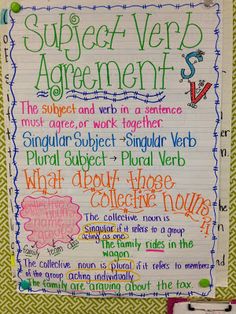 Subject Verb
Agreement
S
V
The subject and verb in a sentence
must agree, or work together.
Singular Subject → Singular Verb
Plural Subject → Plural Verb
What about those
collective nouns?!
The collective noun is
singular if it refers to a group
acting as one.
The family rides in the
wagon.
family team class
The collective noun is plural if it refers to members
of the group acting individually.
The family are arguing about the tax.